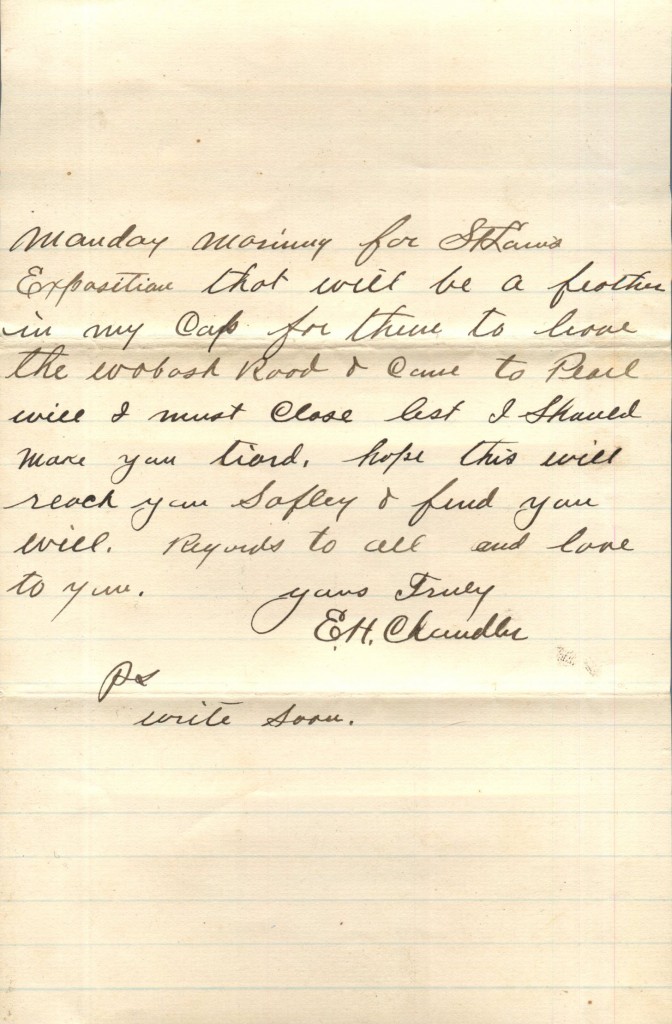 Monday Morning for St Louis
Exposition that will be a feather
in my Cap for them to leave
the Wobash Rood & Come to Pearl
will I must Close lest I Should
make you tiord. hope this will
reach you Safley & find you
will. Regords to all and love
to you. yours Truly
E.H. Chandler
Ps
write Soon.